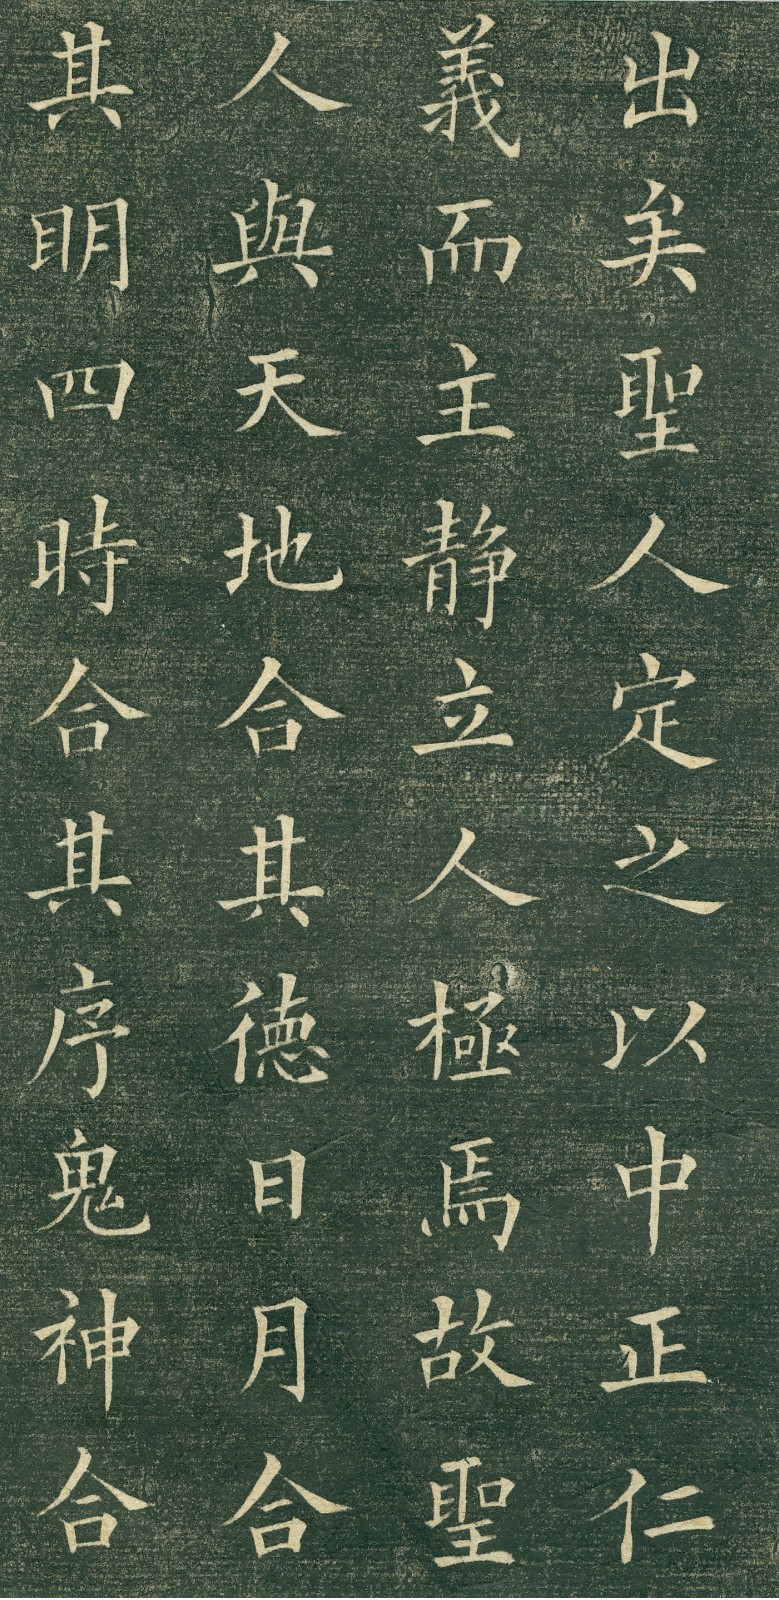 出矣聖人定之以中正仁
義而主静立人極焉故聖
人與天地合其德日月合
其明四時合其序鬼神合